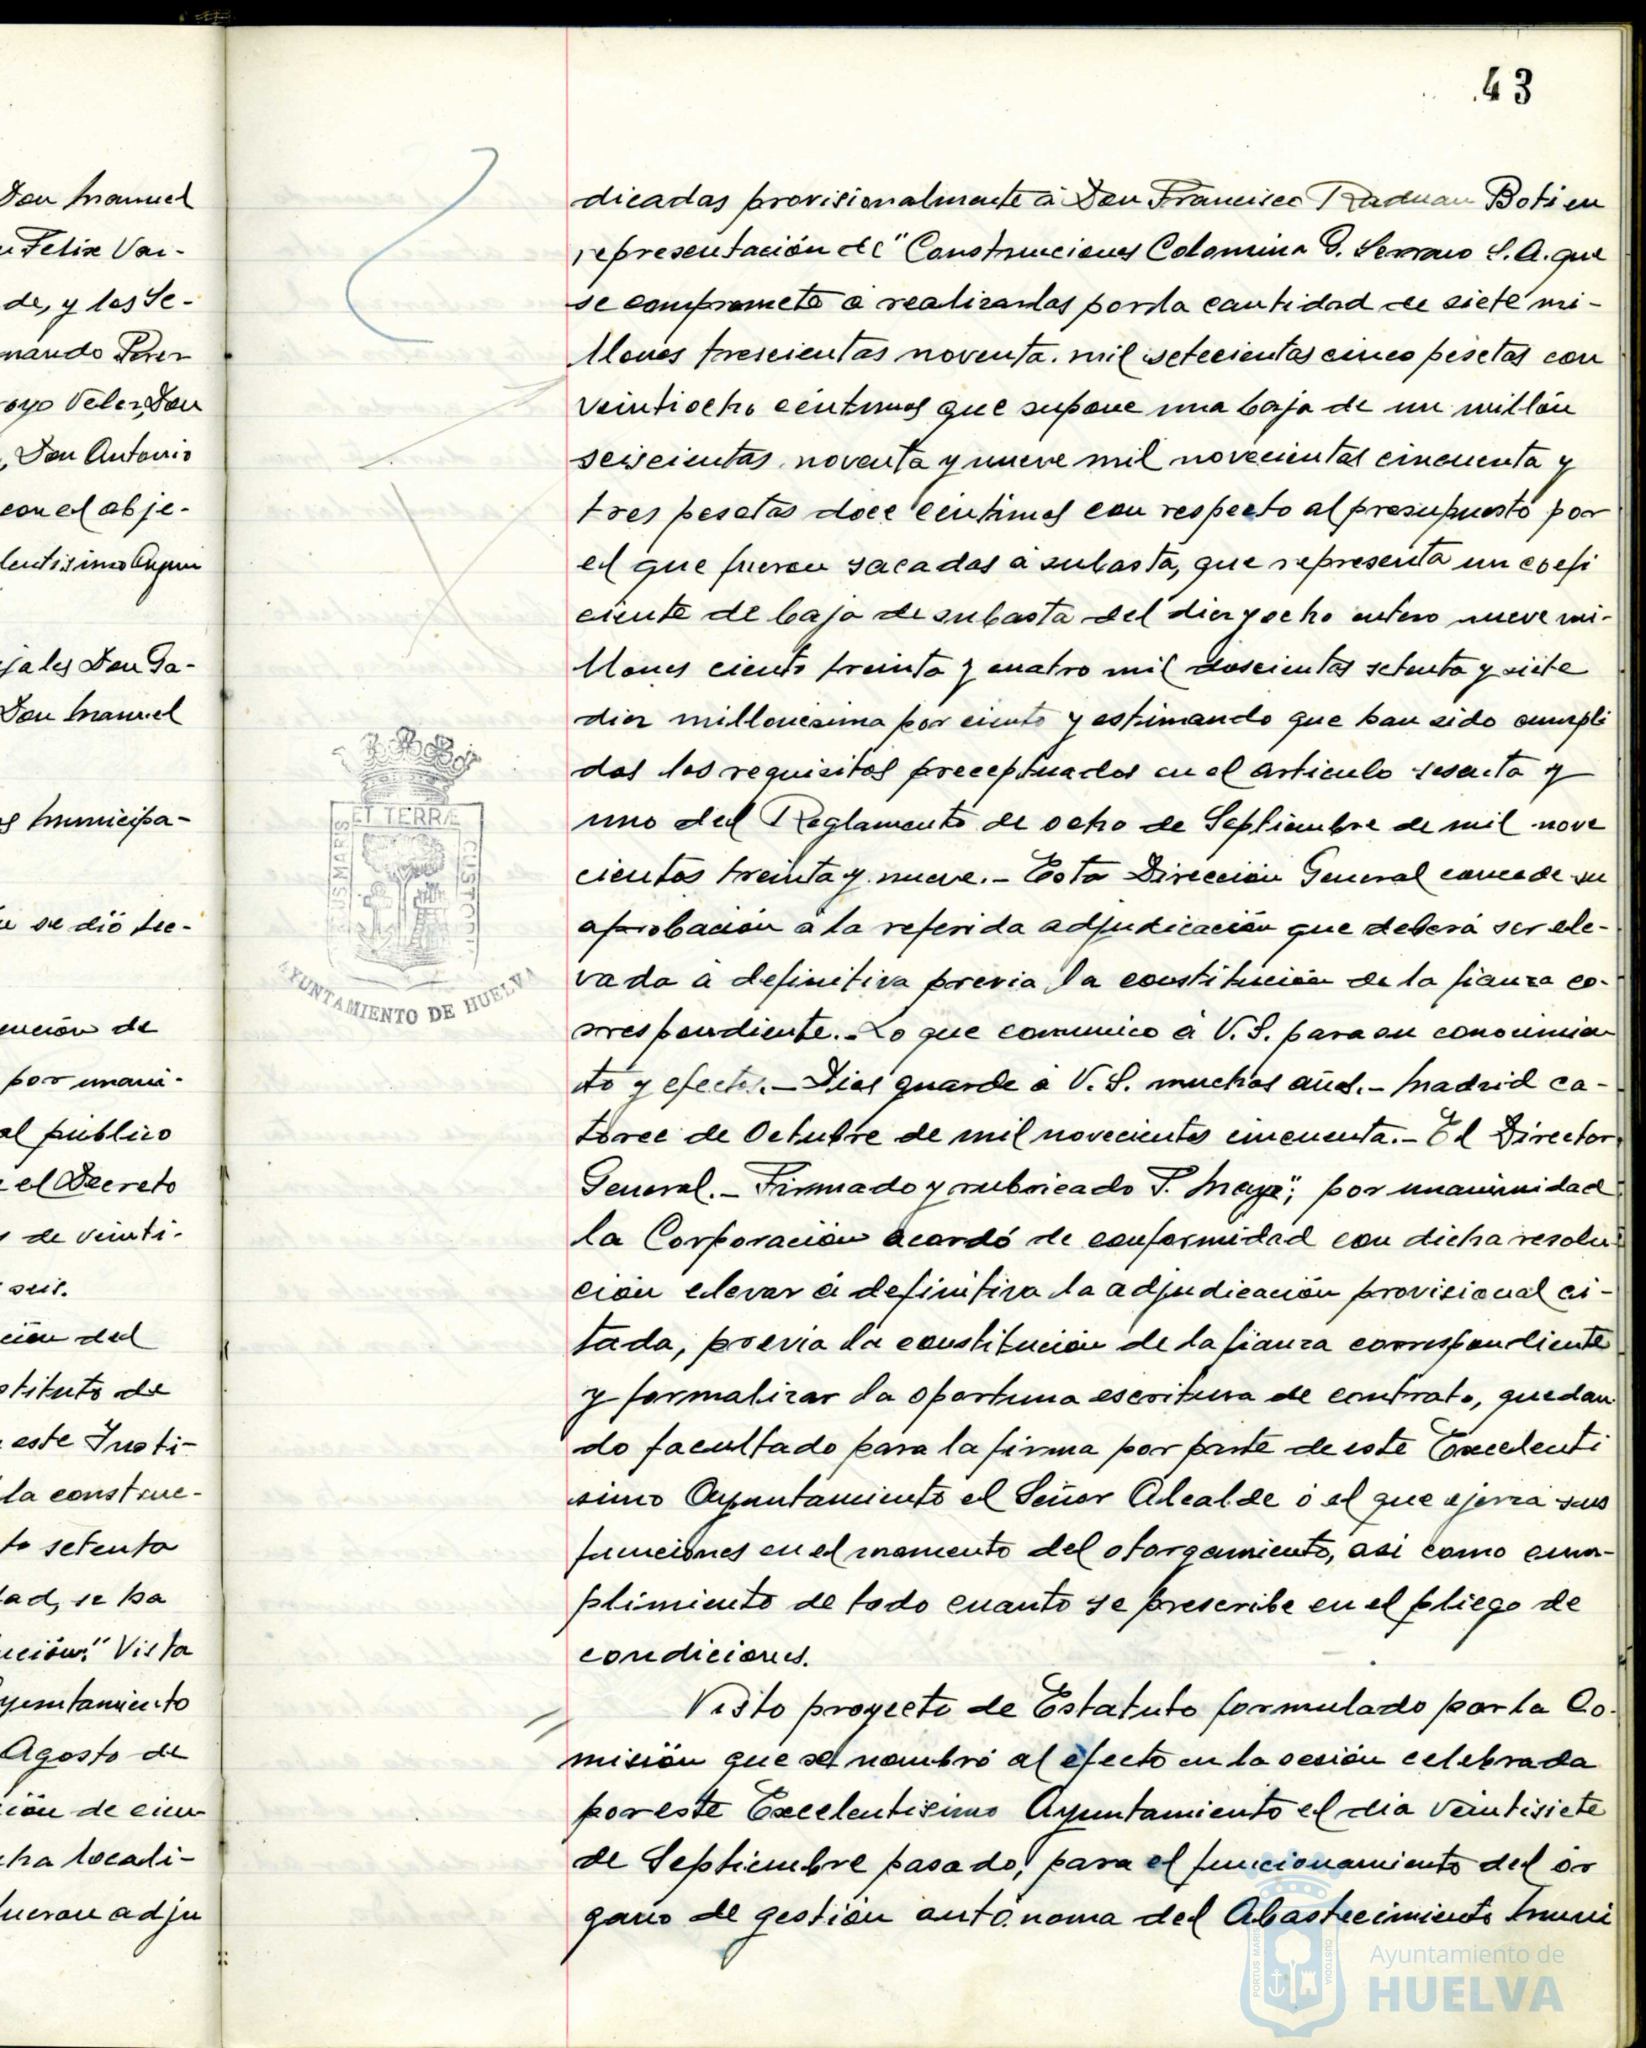 43
Don Manuel
Felix Vai-
de, y los Se-
nando Perez
royo Velez, Don
, Don Antonio
con el obje-
lentisimo Ayun
jales Don Ga-
Don Manuel
s Municipa-
se dió lec-
ución de
por unani-
al público
el Decreto
de veinti-
seis.
ción del
stituto de
este Insti-
la construc-
to setenta
dad, se ha
ución." Vista
yuntamiento
Agosto de
ión de cien-
cha locali-
fueron adju
dicadas provisionalmente á Don Francisco Raduan Boti en
representación de "Construcciones Colomina G. Serrano S.A. que
se compromete á realizarlas por la cantidad de siete mi-
llones trescientas noventa mil setecientas cinco pesetas con
veintiocho céntimos que supone una baja de un millón
seiscientas noventa y nueve mil novecientas cincuenta y
tres pesetas doce céntimos con respecto al presupuesto por
el que fueron sacadas á subasta, que representa un coefi
ciente de baja de subasta del diez y ocho entero nueve mi-
llones ciento treinta y cuatro mil doscientas setenta y siete
diez millonesima por ciento y estimando que han sido cumpli
dos los requisitos preceptuados en el articulo sesenta y
uno del Reglamento de ocho de Septiembre de mil nove
cientos treinta y nueve.- Esta Dirección General concede su
aprobación á la referida adjudicación que deberá ser ele-
vada á definitiva previa la constitución de la fianza co-
rrespondiente.- Lo que comunico á V.S. para su conocimien
to y efectos.- Dios guarde á V.S. muchos años.- Madrid ca-
torce de Octubre de mil novecientos cincuenta.- El Director
General.- Firmado y rubricado F. Mayo"; por unanimidad
la Corporación acordó de conformidad con dicha resolu
ción elevar á definitiva la adjudicación provisional ci-
tada, previa la constitución de la fianza correspondiente
y formalizar la oportuna escritura de contrato, quedan
do facultado para la firma por parte de este Excelenti
simo Ayuntamiento el Señor Alcalde ó el que ejerza sus
funciones en el momento del otorgamiento, asi como cum-
plimiento de todo cuanto se prescribe en el pliego de
condiciones.
Visto proyecto de Estatuto formulado por la Co-
misión que se nombró al efecto en la sesión celebrada
por este Excelentisimo Ayuntamiento el dia veintisiete
de Septiembre pasado, para el funcionamiento del ór
gano de gestión autónoma del Abastecimiento Muni
ET TERRÆ
US MARIS
CUSTODI
AYUNTAMIENTO DE HUELVA
PORTUS MARIS
CUSTODIA
Ayuntamiento de
HUELVA